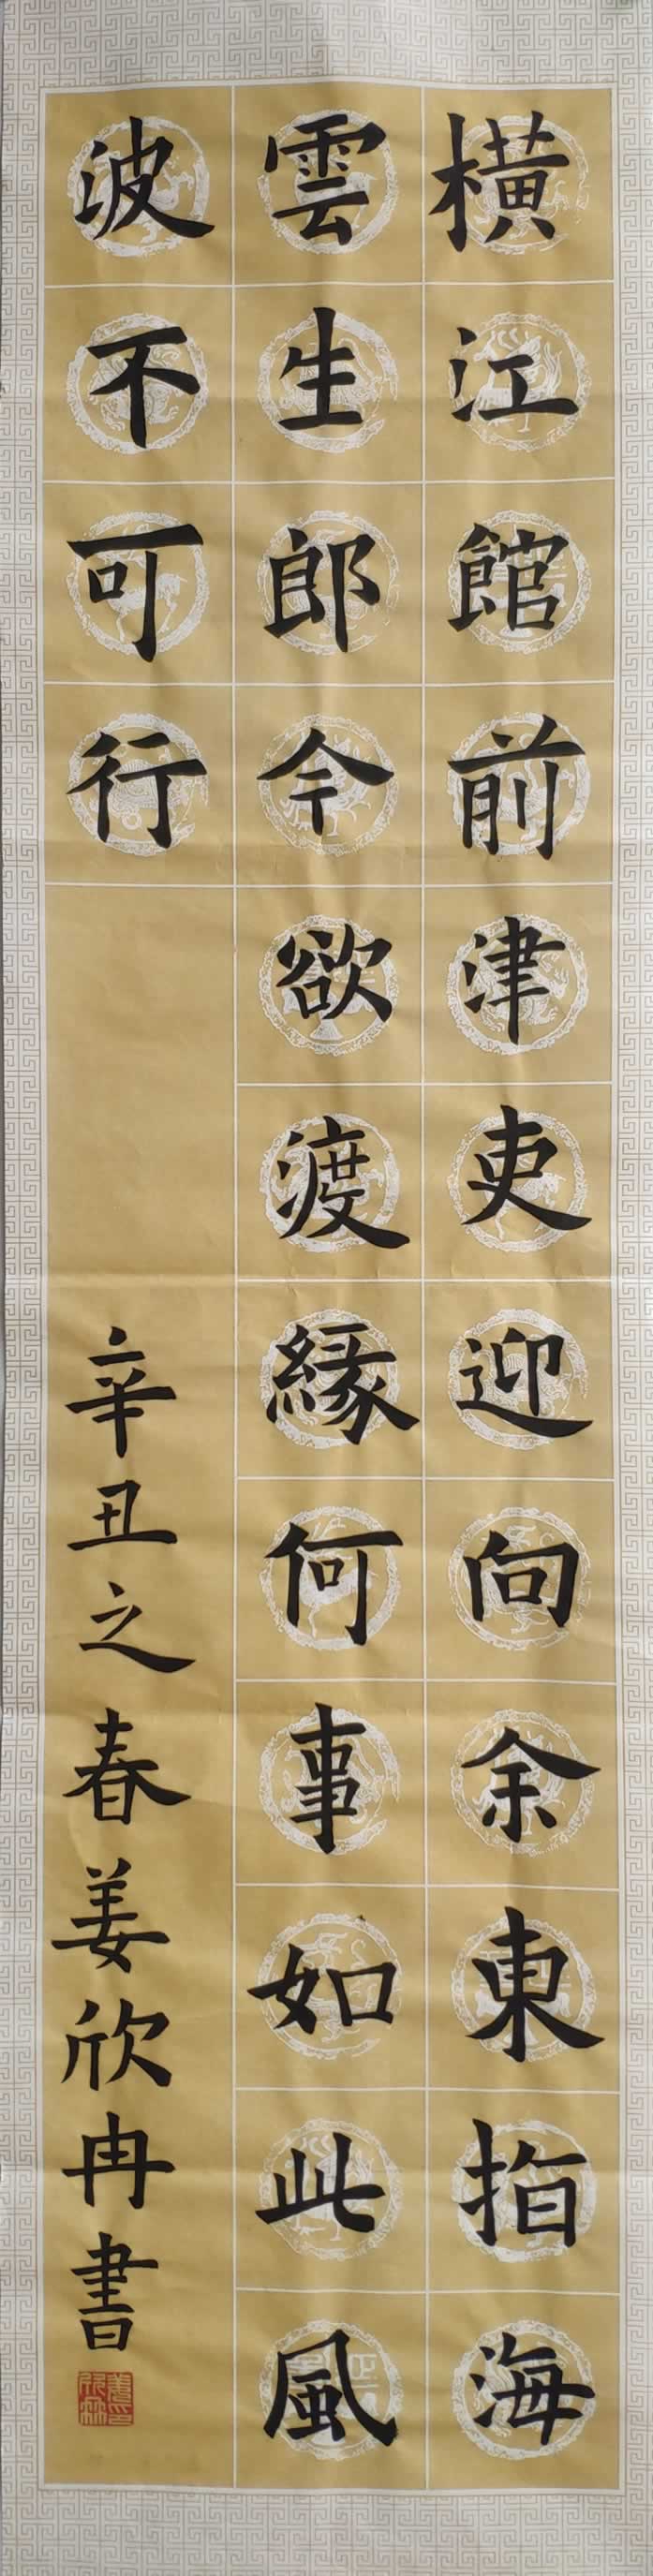 橫江館前津吏迎向余東指海
雲生郎今欲渡緣何事如此風
波不可行
辛丑之春姜欣冉書